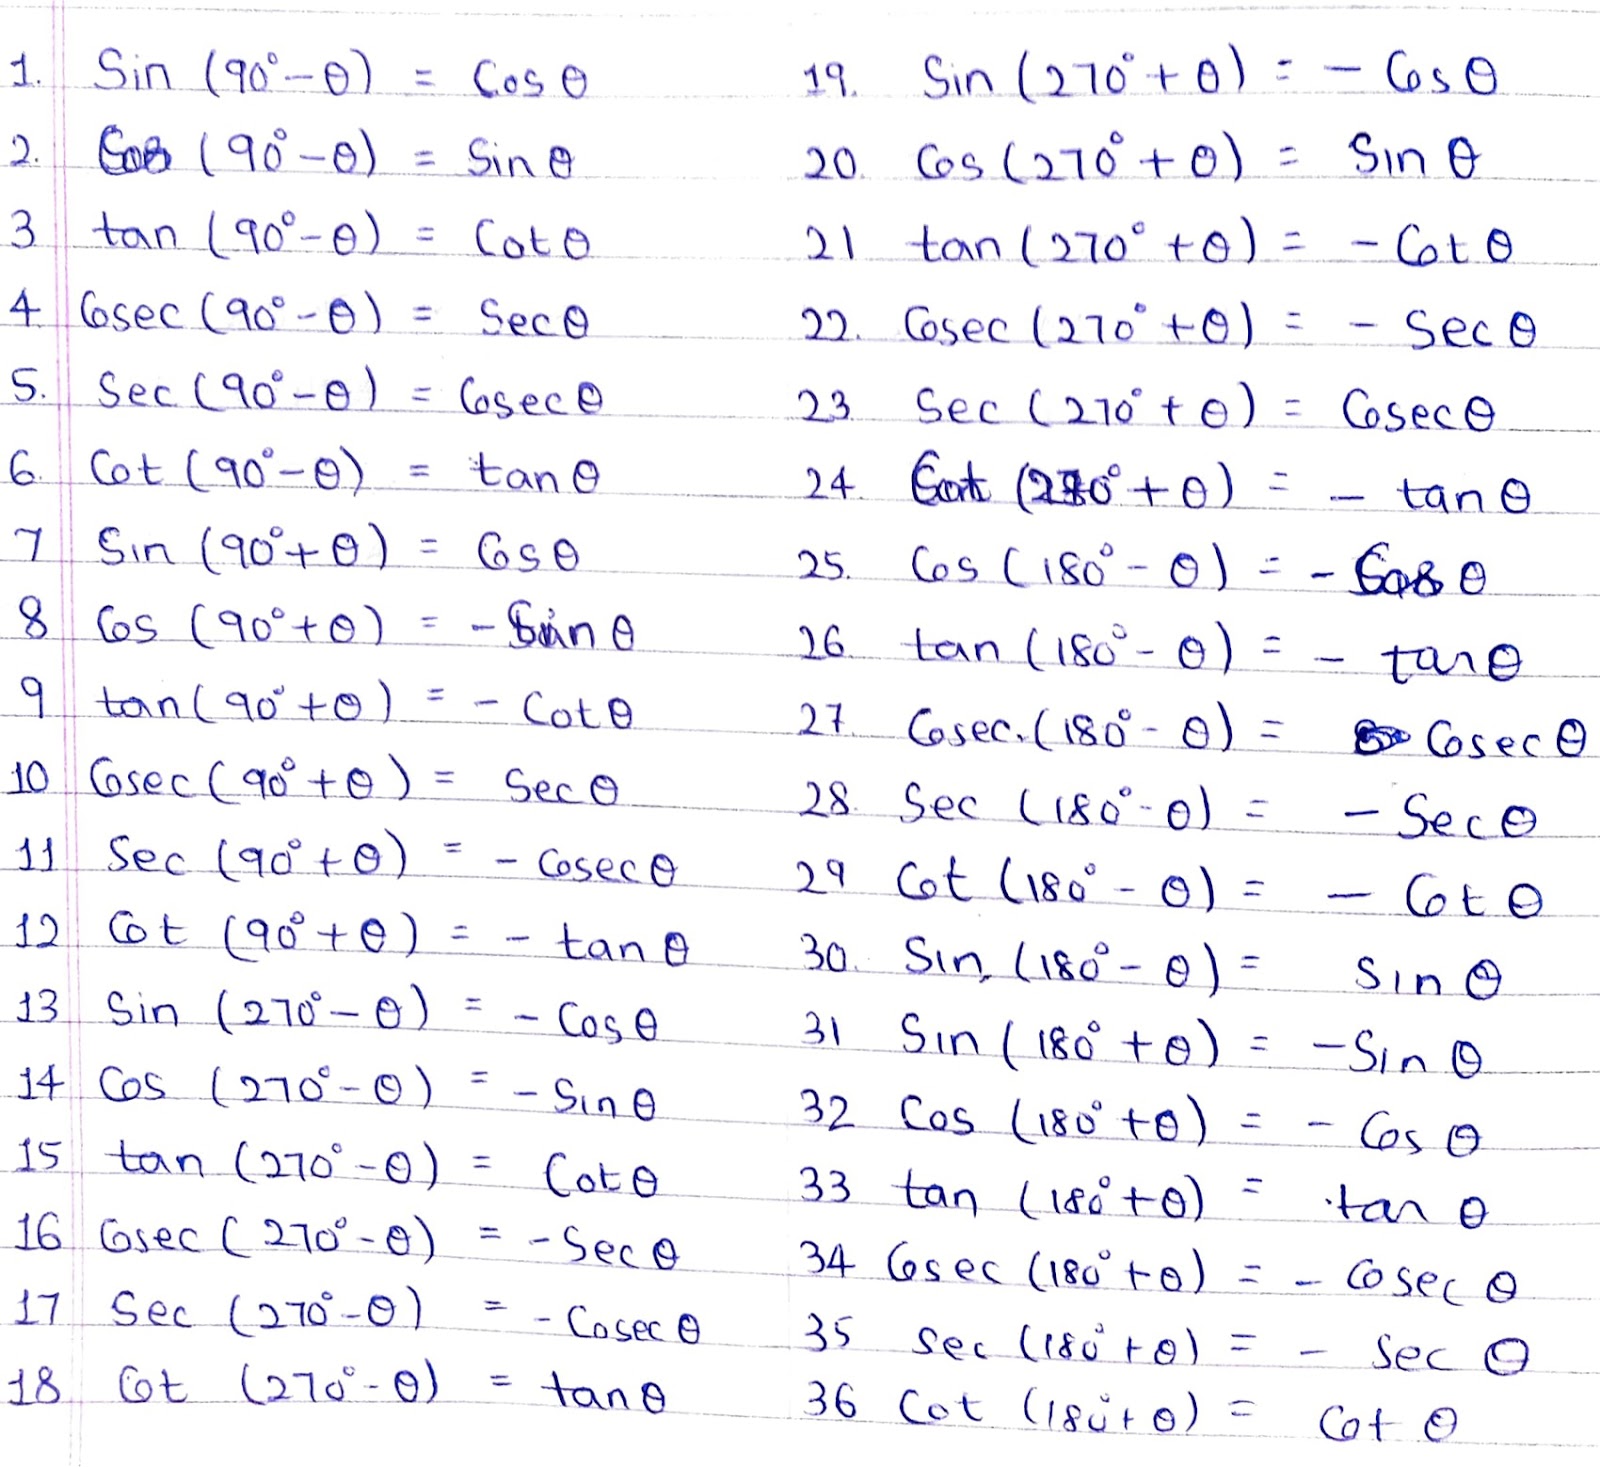 1. Sin (90°-θ) = Cos θ
2. Cos (90°-θ) = Sin θ
3 tan (90°-θ) = Cot θ
4 Cosec (90°-θ) = Sec θ
5. Sec (90°-θ) = Cosec θ
6. Cot (90°-θ) = tan θ
7 Sin (90°+θ) = Cos θ
8 Cos (90°+θ) = - Sin θ
9 tan (90°+θ) = - Cot θ
10 Cosec (90°+θ) = Sec θ
11 Sec (90°+θ) = - Cosec θ
12 Cot (90°+θ) = - tan θ
13 Sin (270°-θ) = - Cos θ
14 Cos (270°-θ) = - Sin θ
15 tan (270°-θ) = Cot θ
16 Cosec (270°-θ) = - Sec θ
17 Sec (270°-θ) = - Cosec θ
18 Cot (270°-θ) = tan θ
19. Sin (270°+θ) = - Cos θ
20. Cos (270°+θ) = Sin θ
21 tan (270°+θ) = - Cot θ
22. Cosec (270°+θ) = - Sec θ
23 Sec (270°+θ) = Cosec θ
24. Cot (270°+θ) = - tan θ
25. Cos (180°-θ) = - Cos θ
26. tan (180°-θ) = - tan θ
27. Cosec. (180°-θ) = Cosec θ
28. Sec (180°-θ) = - Sec θ
29 Cot (180°-θ) = - Cot θ
30. Sin (180°-θ) = Sin θ
31 Sin (180°+θ) = -Sin θ
32 Cos (180°+θ) = - Cos θ
33 tan (180°+θ) = tan θ
34 Cosec (180°+θ) = - Cosec θ
35 Sec (180°+θ) = - Sec θ
36 Cot (180°+θ) = Cot θ